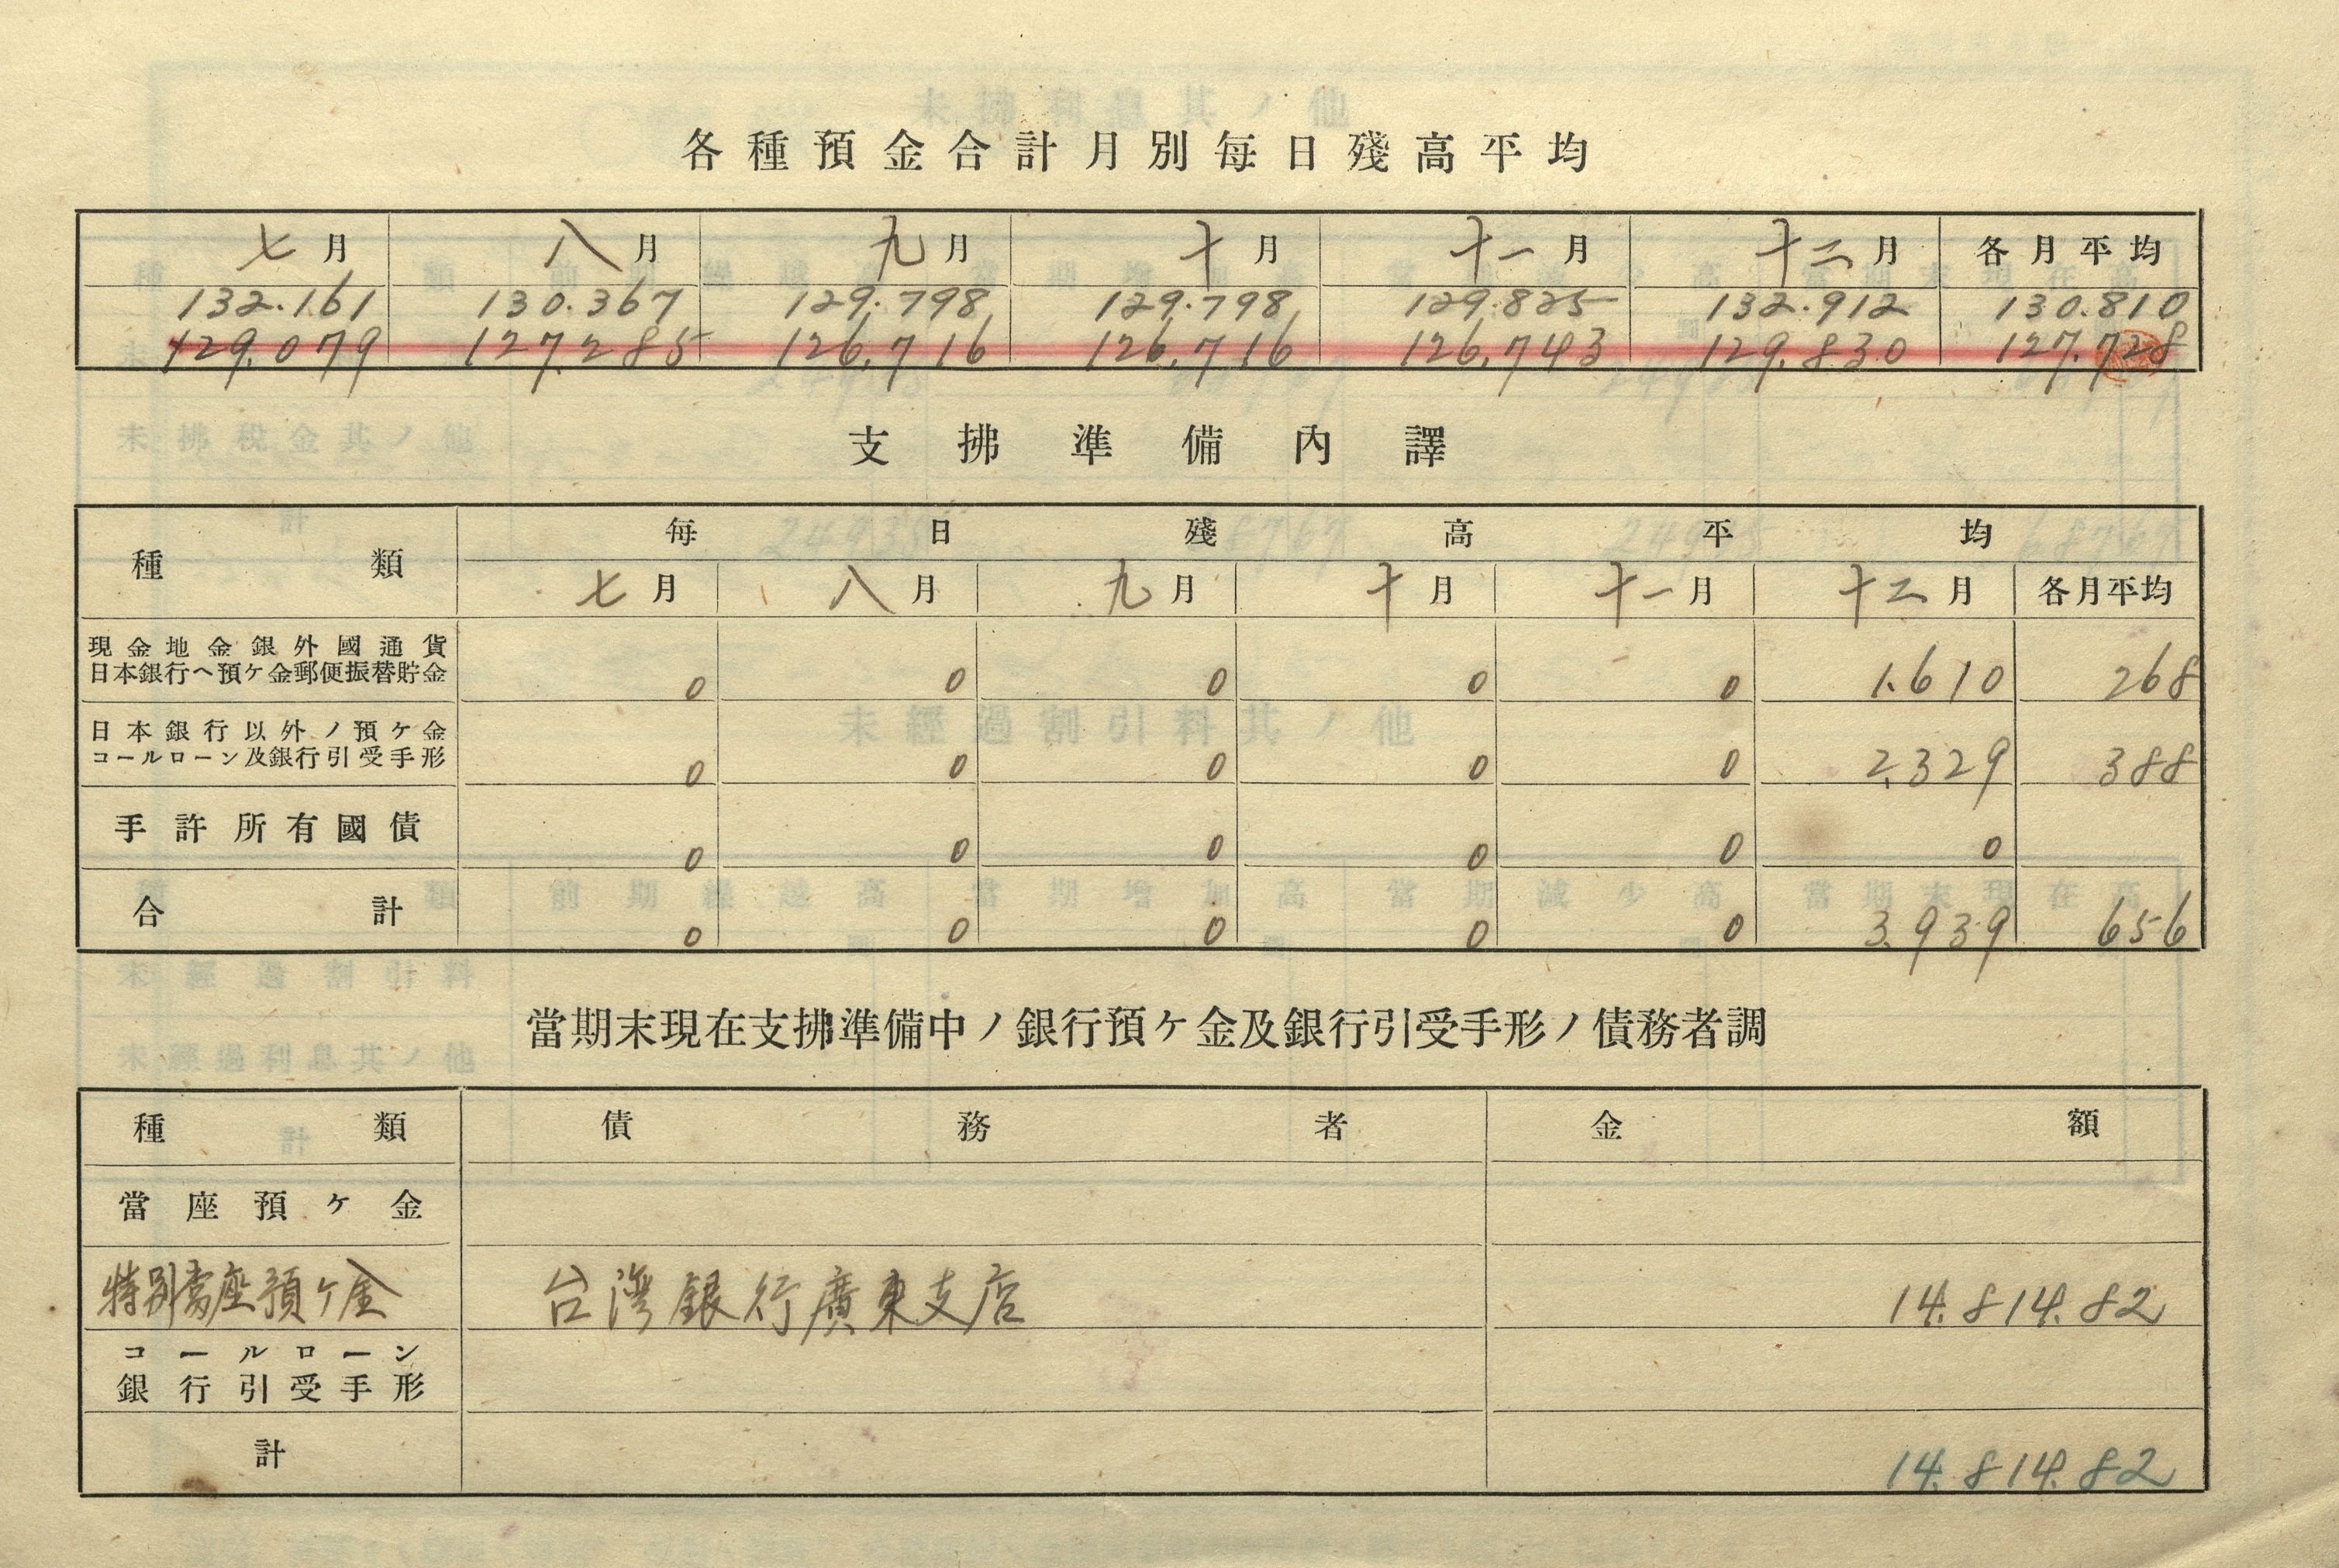 各種預金合計月別每日殘高平均
七月 八月 九月 十月 十一月 十二月 各月平均
132.161 130.367 129.798 129.798 129.825 132.912 130.810
129.079 127.285 126.716 126.716 126.743 129.830 127.728
支拂準備內譯
種類 每日殘高平均
七月 八月 九月 十月 十一月 十二月 各月平均
現金地金銀外國通貨
日本銀行ヘ預ケ金郵便振替貯金 0 0 0 0 0 1.610 268
日本銀行以外ノ預ケ金
コールローン及銀行引受手形 0 0 0 0 0 2.329 388
手許所有國債 0 0 0 0 0 0
合計 0 0 0 0 0 3.939 656
當期末現在支拂準備中ノ銀行預ケ金及銀行引受手形ノ債務者調
種類 債務者 金額
當座預ケ金
特別當座預ケ金 台灣銀行廣東支店 14.814.82
コールローン
銀行引受手形
計 14.814.82